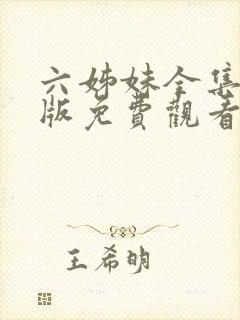 六姊妹全集
版免費觀看
王希明